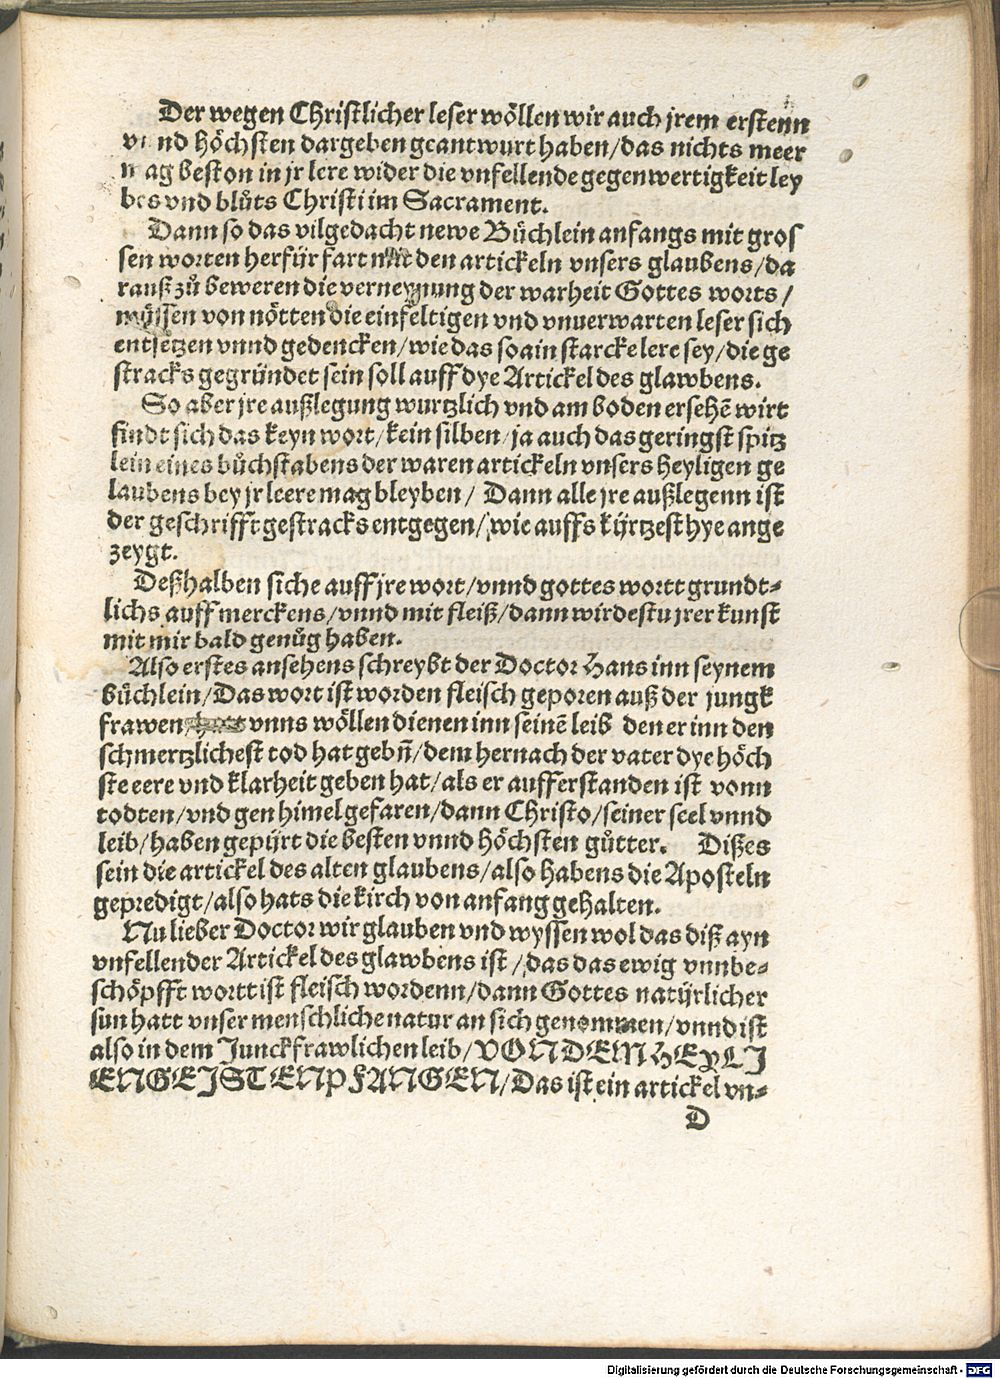 Der wegen Christlicher leser wöllen wir auch jrem erstenn
vnnd höchsten dargeben geantwurt haben/das nichts meer
mag beston in jr lere wider die vnfellende gegenwertigkeit ley
bes vnd blůts Christi im Sacrament.
Dann so das vilgedacht newe Bůchlein anfangs mit gros
sen worten herfür fart mit den artickeln vnsers glaubens/da
rauß zů beweren die verneynung der warheit Gottes worts/
müssen von nötten die einfeltigen vnd vnuerwarten leser sich
entsetzen vnnd gedencken/wie das so ain starcke lere sey/die ge
stracks gegründet sein soll auff dye Artickel des glawbens.
So aber jre außlegung wurtzlich vnd am boden ersehẽ wirt
findt sich das keyn wort/kein silben/ja auch das geringst spitz
lein eines bůchstabens der waren artickeln vnsers heyligen ge
laubens bey jr leere mag bleyben/ Dann alle jre außlegenn ist
der geschrifft gestracks entgegen/wie auffs kürtzest hye ange
zeygt.
Deßhalben siche auff jre wort/vnnd gottes wortt grundt-
lichs auffmerckens/vnnd mit fleiß/dann wirdestu jrer kunst
mit mir bald genůg haben.
Also erstes ansehens schreybt der Doctor Hans inn seynem
bůchlein/Das wort ist worden fleisch geporen auß der jungk
frawen/ vnns wöllen dienen inn seinẽ leib den er inn den
schmertzlichest tod hat gebñ/dem hernach der vater dye höch
ste eere vnd klarheit geben hat/als er aufferstanden ist vonn
todten/vnd gen himel gefaren/dann Christo/seiner seel vnnd
leib/haben gepürt die besten vnnd höchsten gůtter. Dißes
sein die artickel des alten glaubens/also habens die Aposteln
gepredigt/also hats die kirch von anfang gehalten.
Nu lieber Doctor wir glauben vnd wyssen wol das diß ayn
vnfellender Artickel des glawbens ist/das das ewig vnnbe-
schöpfft wortt ist fleisch wordenn/dann Gottes natürlicher
sun hatt vnser menschliche natur an sich genommen/vnnd ist
also in dem Junckfrawlichen leib/VON DEM HEYLI
ENGEIST ENPFANGEN/Das ist ein artickel vn-
D
Digitalisierung gefördert durch die Deutsche Forschungsgemeinschaft - DFG